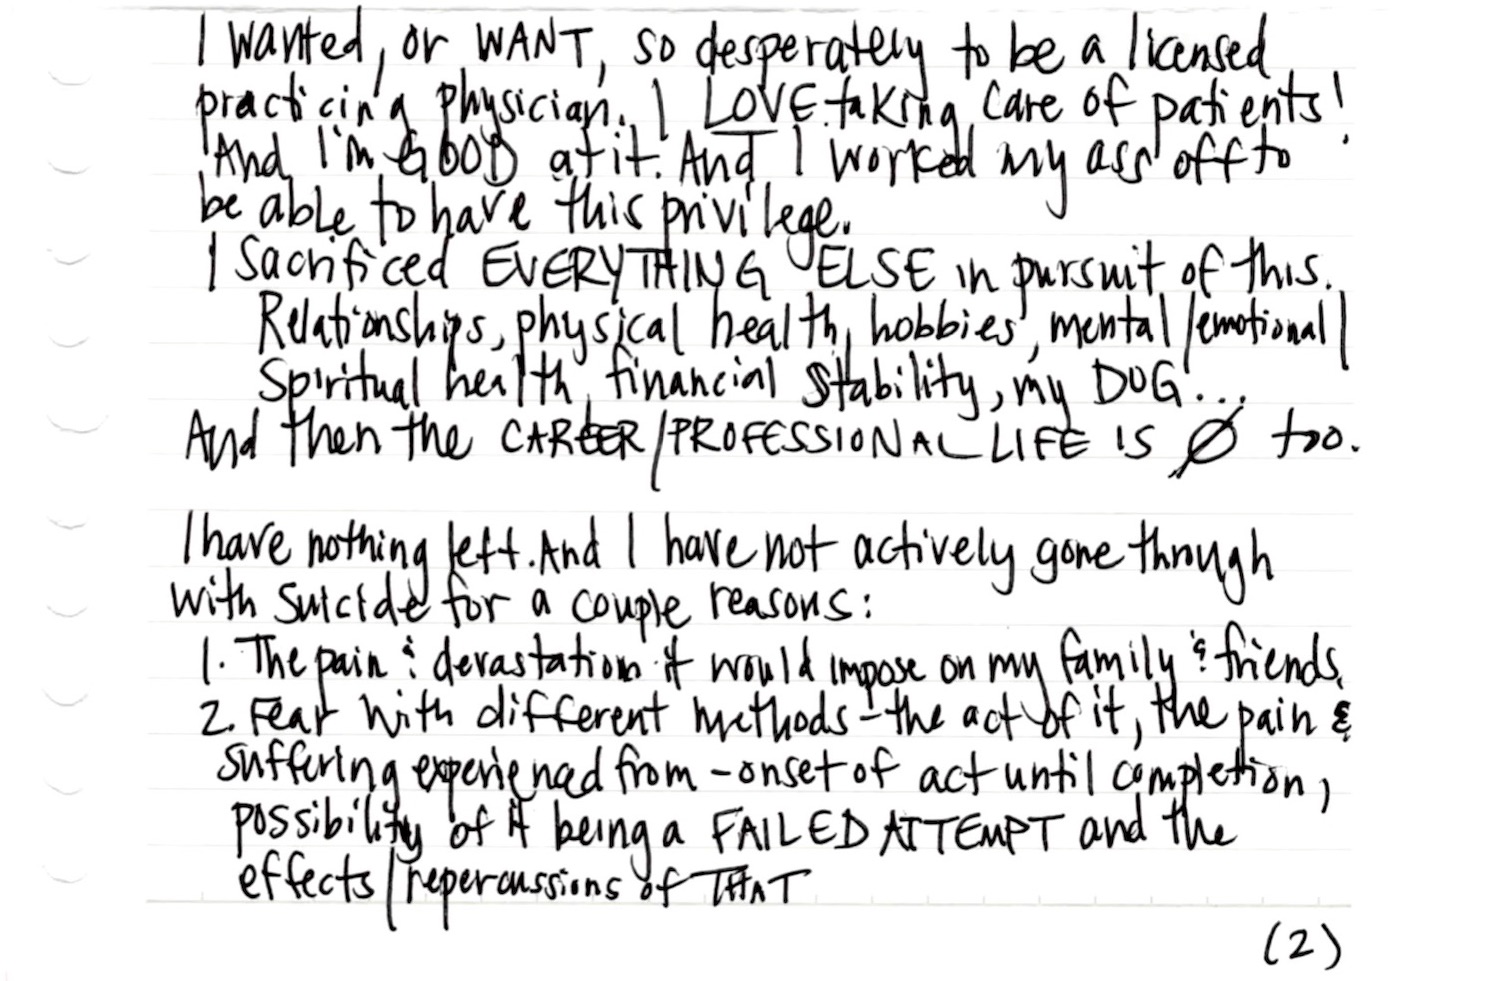 I wanted, or WANT, so desperately to be a licensed
practicing physician. I LOVE taking care of patients!
And I'm GOOD at it. And I worked my ass off to
be able to have this privilege.
I sacrificed EVERYTHING ELSE in pursuit of this.
Relationships, physical health, hobbies, mental/emotional/
spiritual health, financial stability, my DOG...
And then the CAREER/PROFESSIONAL LIFE IS Ø too.
I have nothing left. And I have not actively gone through
with suicide for a couple reasons:
1. The pain & devastation it would impose on my family & friends.
2. Fear with different methods - the act of it, the pain &
suffering experienced from - onset of act until completion,
possibility of it being a FAILED ATTEMPT and the
effects/repercussions of THAT
(2)